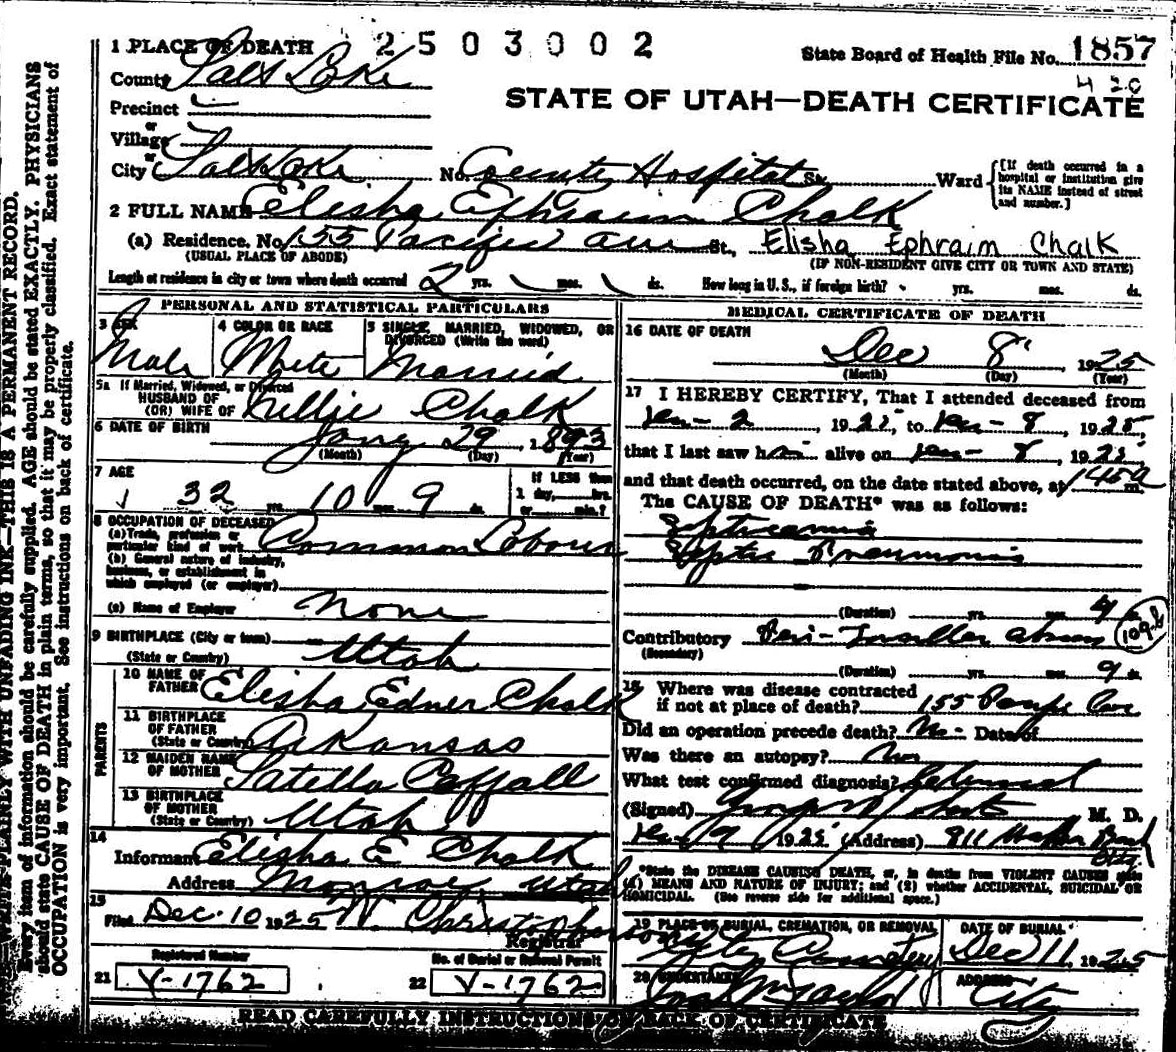 2503002
State Board of Health File No. 1857
420
1 PLACE OF DEATH
County Salt Lake
STATE OF UTAH—DEATH CERTIFICATE
Precinct
or
Village
or
City Salt Lake No. County Hospital St. Ward {[If death occurred in a hospital or institution give its NAME instead of street and number.]
2 FULL NAME Elisha Ephraim Chalk
(a) Residence. No. 155 Pacific Ave St., Elisha Ephraim Chalk
(USUAL PLACE OF ABODE) (IF NON-RESIDENT GIVE CITY OR TOWN AND STATE)
Length of residence in city or town where death occurred 2 yrs. mos. ds. How long in U.S., if foreign birth? yrs. mos. ds.
PERSONAL AND STATISTICAL PARTICULARS
3 SEX 4 COLOR OR RACE 5 SINGLE, MARRIED, WIDOWED, OR DIVORCED (Write the word)
Male White Married
5a If Married, Widowed, or Divorced
HUSBAND OF
(OR) WIFE OF Nellie Chalk
6 DATE OF BIRTH Jany 29, 1893
(Month) (Day) (Year)
7 AGE 32 yrs. 10 mos. 9 ds.
If LESS than
1 day, hrs.
or min.?
8 OCCUPATION OF DECEASED
(a) Trade, profession or
particular kind of work Common Laborer
(b) General nature of industry,
business, or establishment in
which employed (or employer)
(c) Name of Employer None
9 BIRTHPLACE (City or town)
(State or Country) Utah
PARENTS
10 NAME OF
FATHER Elisha Edner Chalk
11 BIRTHPLACE
OF FATHER
(State or Country) Arkansas
12 MAIDEN NAME
OF MOTHER Satella Caffall
13 BIRTHPLACE
OF MOTHER
(State or Country) Utah
14
Informant Elisha E Chalk
Address Monroe, Utah
15
Filed Dec. 10 1925 W. Christopherson
Registrar
Registered Number No. of Burial or Removal Permit
21 V-1762 22 V-1762
MEDICAL CERTIFICATE OF DEATH
16 DATE OF DEATH
Dec 8 1925
(Month) (Day) (Year)
17 I HEREBY CERTIFY, That I attended deceased from
2, 1925, to 8, 1925,
that I last saw h alive on 8, 1925
and that death occurred, on the date stated above, at 145a m.
The CAUSE OF DEATH* was as follows:
Septicaemia
Septic Pneumonia
(Duration) yrs. mos. 4 ds.
109-b
Contributory Peri-Tonsillar abscess
(Secondary)
(Duration) yrs. mos. 9 ds.
18 Where was disease contracted
if not at place of death? 155 Ave
Did an operation precede death? No Date of
Was there an autopsy? No
What test confirmed diagnosis?
(Signed) M. D.
9, 1925 (Address) 811 Bank
Bldg.
*State the DISEASE CAUSING DEATH, or, in deaths from VIOLENT CAUSES state (1) MEANS AND NATURE OF INJURY; and (2) whether ACCIDENTAL, SUICIDAL OR HOMICIDAL. (See reverse side for additional space.)
19 PLACE OF BURIAL, CREMATION, OR REMOVAL DATE OF BURIAL
City Cemetery Dec 11, 1925
20 UNDERTAKER ADDRESS
City
READ CAREFULLY INSTRUCTIONS ON BACK OF CERTIFICATE
WRITE PLAINLY WITH UNFADING INK—THIS IS A PERMANENT RECORD.
Every item of information should be carefully supplied. AGE should be stated EXACTLY. PHYSICIANS
should state CAUSE OF DEATH in plain terms, so that it may be properly classified. Exact statement of
OCCUPATION is very important. See instructions on back of certificate.